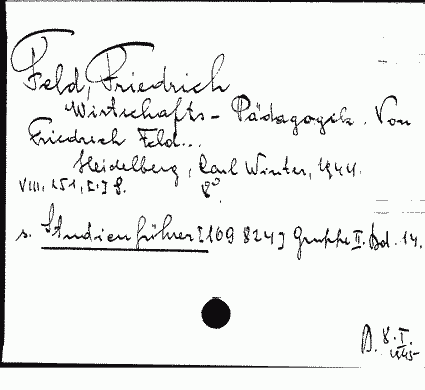 Feld, Friedrich
Wirtschafts-Pädagogik. Von
Friedrich Feld...
Heidelberg, Carl Winter, 1944.
VIII, 151, [1] S. 8°
s. Studienführer [109 824] Gruppe II. Bd. 14.
8. I.
1945